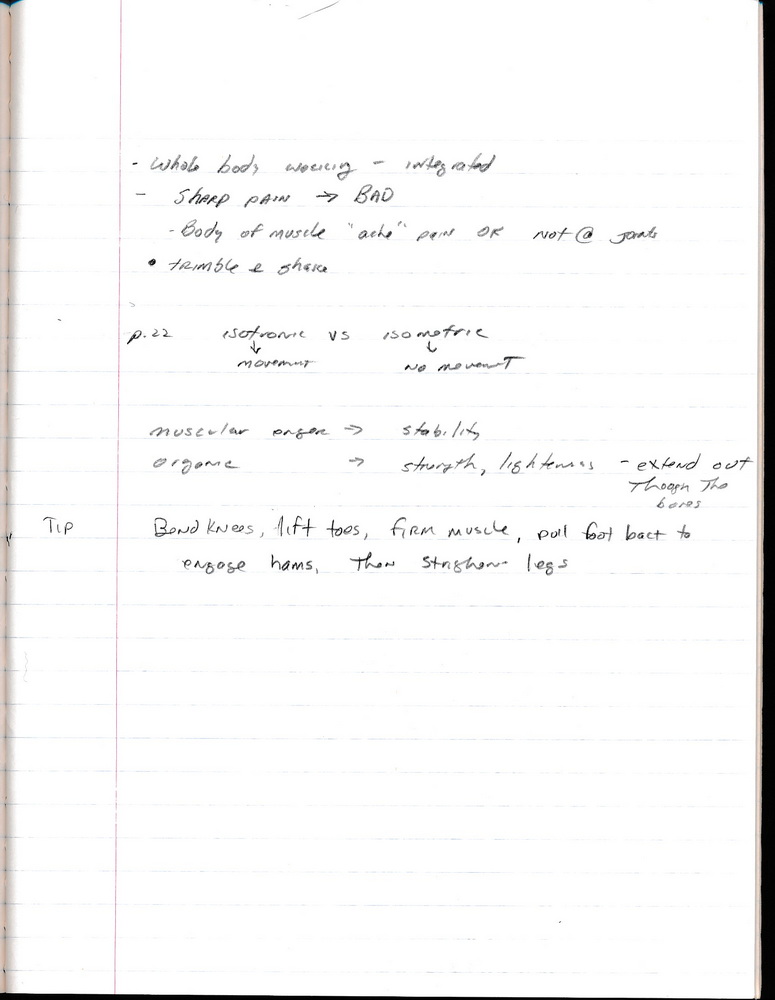 - Whole body working - integrated
- SHARP PAIN → BAD
- Body of muscle "ache" pain OK not @ joints
• tremble & shake
p.22 isotronic vs isometric
↓ ↓
movement NO movement
muscular → stability
organic → strength, lightness - extend out
Though The
bones
TIP Bend knees, lift toes, firm muscle, pull foot back to
engage hams, then legs